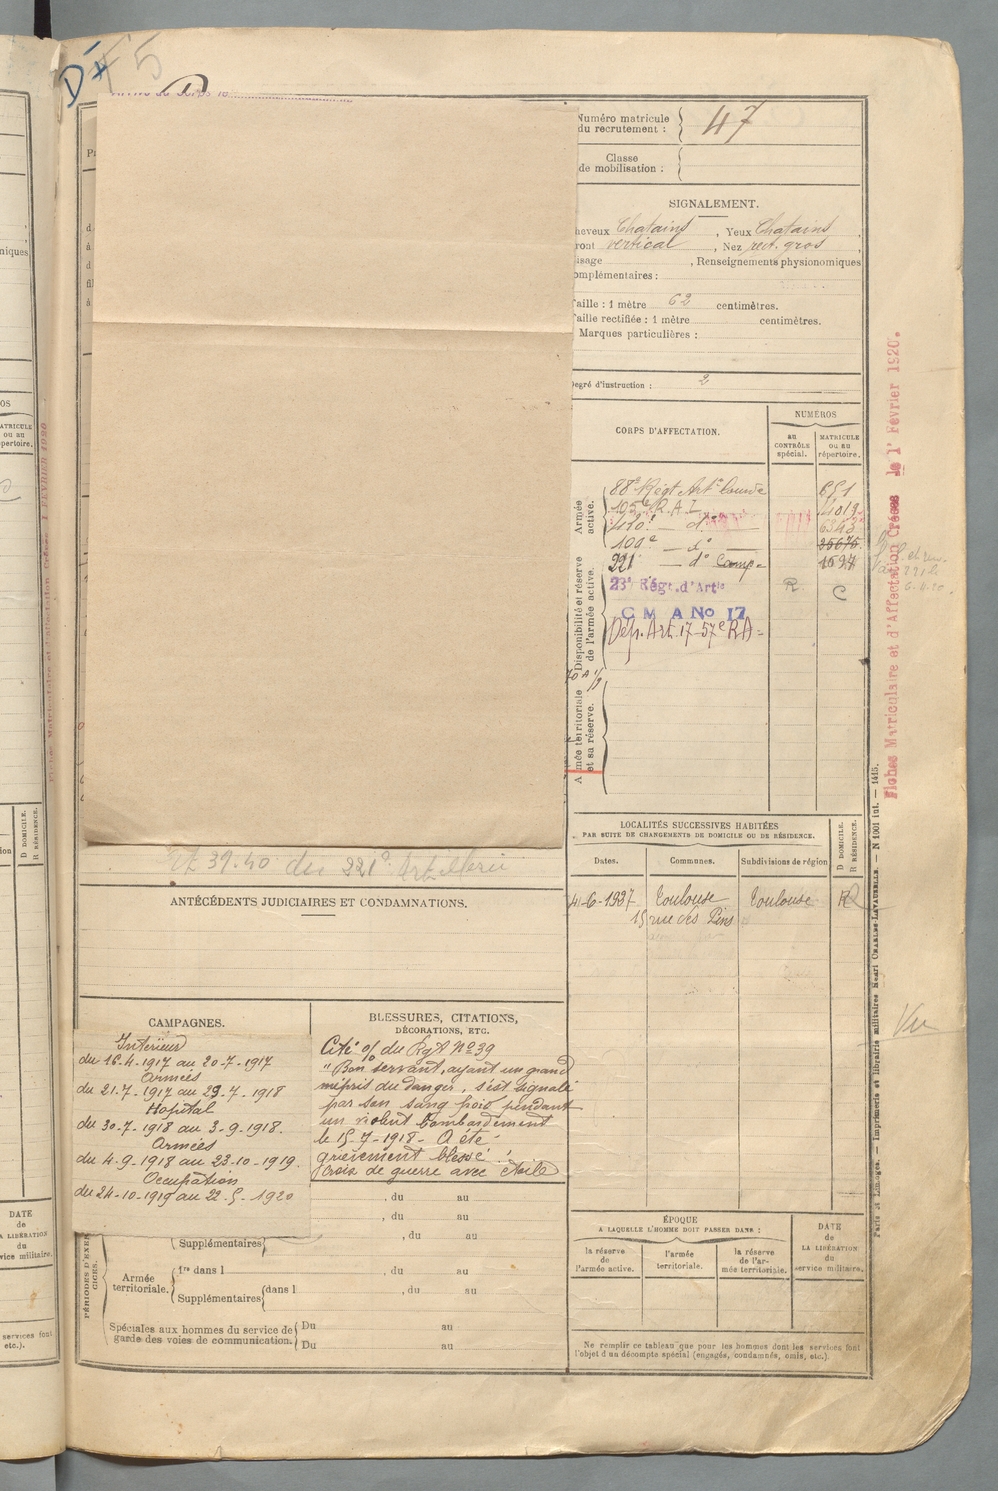 D F5
Numéro matricule
du recrutement : 47
Classe
de mobilisation :
SIGNALEMENT.
heveux Chatains, Yeux Chatains,
ront vertical, Nez rect. gros,
isage , Renseignements physionomiques
omplémentaires :
Taille : 1 mètre 62 centimètres.
Taille rectifiée : 1 mètre centimètres.
Marques particulières :
Degré d'instruction : 2
CORPS D'AFFECTATION.
NUMÉROS
AU CONTRÔLE spécial.
MATRICULE ou au répertoire.
Armée active.
88e Régt Art. lourde 651
105e R.A.L. 4019
410e — do — 6343
109e — do — 35675
221 — do Camp.
Disponibilité et réserve de l'armée active.
23e Régt. d'Artie R C
C M A No 17
Dép. Art. 17 - 57e RA -
Armée territoriale et sa réserve.
LOCALITÉS SUCCESSIVES HABITÉES
PAR SUITE DE CHANGEMENTS DE DOMICILE OU DE RÉSIDENCE.
D DOMICILE.
R RÉSIDENCE.
Dates. Communes. Subdivisions de région
4-6-1937 Toulouse Toulouse R
15 rue des Pins
ÉPOQUE
A LAQUELLE L'HOMME DOIT PASSER DANS :
DATE
de
LA LIBÉRATION
du
service militaire.
la réserve de l'armée active.
l'armée territoriale.
la réserve de l'armée territoriale.
Ne remplir ce tableau que pour les hommes dont les services font
l'objet d'un décompte spécial (engagés, condamnés, omis, etc.).
39.40 du 221e Artillerie
ANTÉCÉDENTS JUDICIAIRES ET CONDAMNATIONS.
CAMPAGNES.
Intérieur
du 16-4-1917 au 20-7-1917
Armées
du 21-7-1917 au 29-7-1918
Hopital
du 30-7-1918 au 3-9-1918.
Armées
du 4-9-1918 au 23-10-1919.
Occupation
du 24-10-1919 au 22-5-1920
BLESSURES, CITATIONS,
DÉCORATIONS, ETC.
Cité % du Rgt No 39
"Bon servant, ayant un grand
mépris du danger, s'est signalé
par son sang froid pendant
un violent bombardement
le 15-7-1918 - A été
grièvement blessé."
Croix de guerre avec étoile
, du au
, du au
PÉRIODES D'EXERCICES.
Supplémentaires , du au
Armée territoriale.
1re dans l , du au
Supplémentaires dans l , du au
Spéciales aux hommes du service de
garde des voies de communication.
Du au
Du au
Fiches Matriculaire et d'Affectation Créées le 1er Février 1920.
Paris et Limoges. — Imprimerie et librairie militaires Henri CHARLES-LAVAUZELLE. — N 1001 int. — 1415.
Vu
niques
MATRICULE
ou au
répertoire.
D DOMICILE.
R RÉSIDENCE.
DATE
de
LA LIBÉRATION
du
service militaire.
services font
etc.).